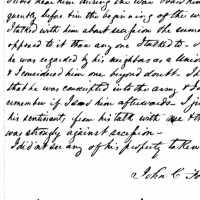 quently before him the beginning of the w
I talked with him about secession the summer
opposed to it than any one I talked to.
he was regarded by his neighbors as a Union
& I considered him one beyond doubt. I
that he was conscripted into the army & I
remember if I saw him afterwards. I giv
his sentiments from his talk with me &
was strongly against secession.
I did not see any of his property taken
John C.